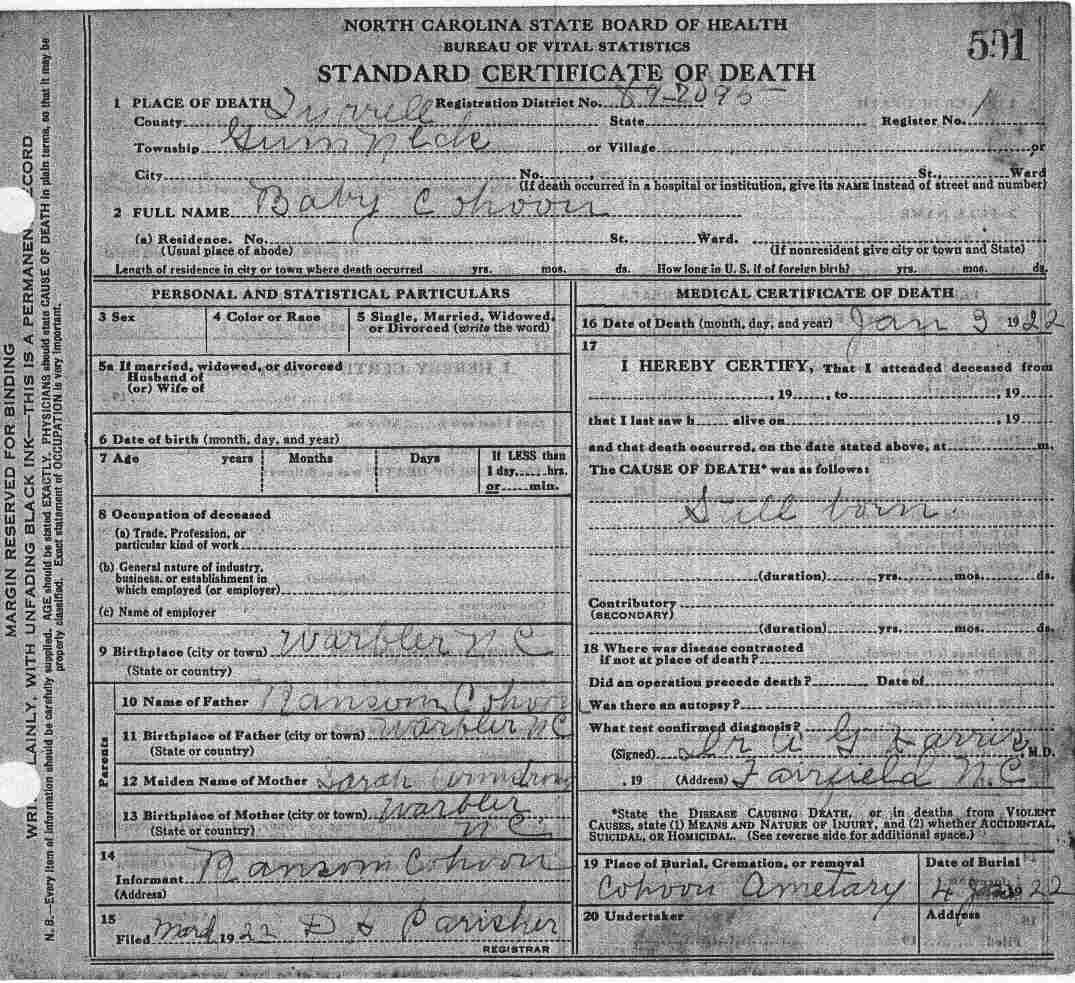 NORTH CAROLINA STATE BOARD OF HEALTH
BUREAU OF VITAL STATISTICS
591
STANDARD CERTIFICATE OF DEATH
1 PLACE OF DEATH Registration District No. 89-7095
County Tyrrell State Register No. 1
Township Gum Neck or Village or
City No. St., Ward
(If death occurred in a hospital or institution, give its NAME instead of street and number)
2 FULL NAME Baby Cohoon
(a) Residence. No. St. Ward.
(Usual place of abode) (If nonresident give city or town and State)
Length of residence in city or town where death occurred yrs. mos. ds. How long in U. S. if of foreign birth? yrs. mos. ds.
PERSONAL AND STATISTICAL PARTICULARS
3 Sex
4 Color or Race
5 Single, Married, Widowed,
or Divorced (write the word)
5a If married, widowed, or divorced
Husband of
(or) Wife of
6 Date of birth (month, day, and year)
7 Age years Months Days If LESS than
1 day, hrs.
or min.
8 Occupation of deceased
(a) Trade, Profession, or
particular kind of work
(b) General nature of industry,
business, or establishment in
which employed (or employer)
(c) Name of employer
9 Birthplace (city or town) Warbler N C
(State or country)
Parents
10 Name of Father Ransom Cohoon
11 Birthplace of Father (city or town) Warbler N C
(State or country)
12 Maiden Name of Mother Sarah Armstrong
13 Birthplace of Mother (city or town) Warbler
(State or country) N C
14
Informant Ransom Cohoon
(Address)
15
Filed 1922 Parisher
REGISTRAR
MEDICAL CERTIFICATE OF DEATH
16 Date of Death (month, day, and year) Jan 3 1922
17
I HEREBY CERTIFY, That I attended deceased from
, 19 , to , 19
that I last saw h alive on , 19
and that death occurred, on the date stated above, at m.
The CAUSE OF DEATH* was as follows:
Still born.
(duration) yrs. mos. ds.
Contributory
(SECONDARY)
(duration) yrs. mos. ds.
18 Where was disease contracted
if not at place of death?
Did an operation precede death? Date of
Was there an autopsy?
What test confirmed diagnosis?
(Signed) Dr G Harris, M.D.
, 19 (Address) Fairfield N.C
*State the DISEASE CAUSING DEATH, or in deaths from VIOLENT
CAUSES, state (1) MEANS AND NATURE OF INJURY, and (2) whether ACCIDENTAL,
SUICIDAL, OR HOMICIDAL. (See reverse side for additional space.)
19 Place of Burial, Cremation, or removal
Cohoon
Date of Burial
4 Jan 1922
20 Undertaker
Address
MARGIN RESERVED FOR BINDING
LAINLY, WITH UNFADING BLACK INK—THIS IS A PERMANEN CORD
N. B.—Every item of information should be carefully supplied. AGE should be stated EXACTLY. PHYSICIANS should state CAUSE OF DEATH in plain terms, so that it may be
properly classified. Exact statement of OCCUPATION is very important.